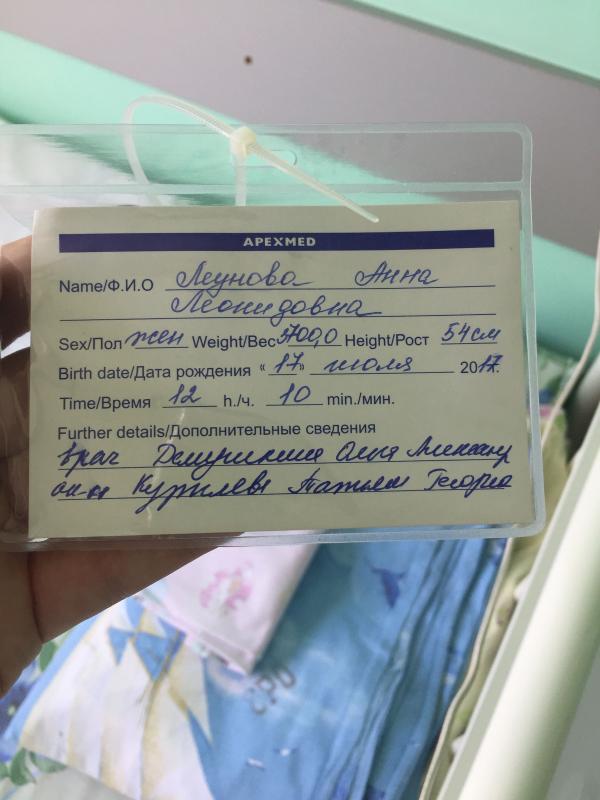 APEXMED
Name/Ф.И.О Леунова Анна
Леонидовна
Sex/Пол жен Weight/Вес 3700,0 Height/Рост 54см
Birth date/Дата рождения «17» июля 2017.
Time/Время 12 h./ч. 10 min./мин.
Further details/Дополнительные сведения
врач Ольга
ак-ка Татьяна